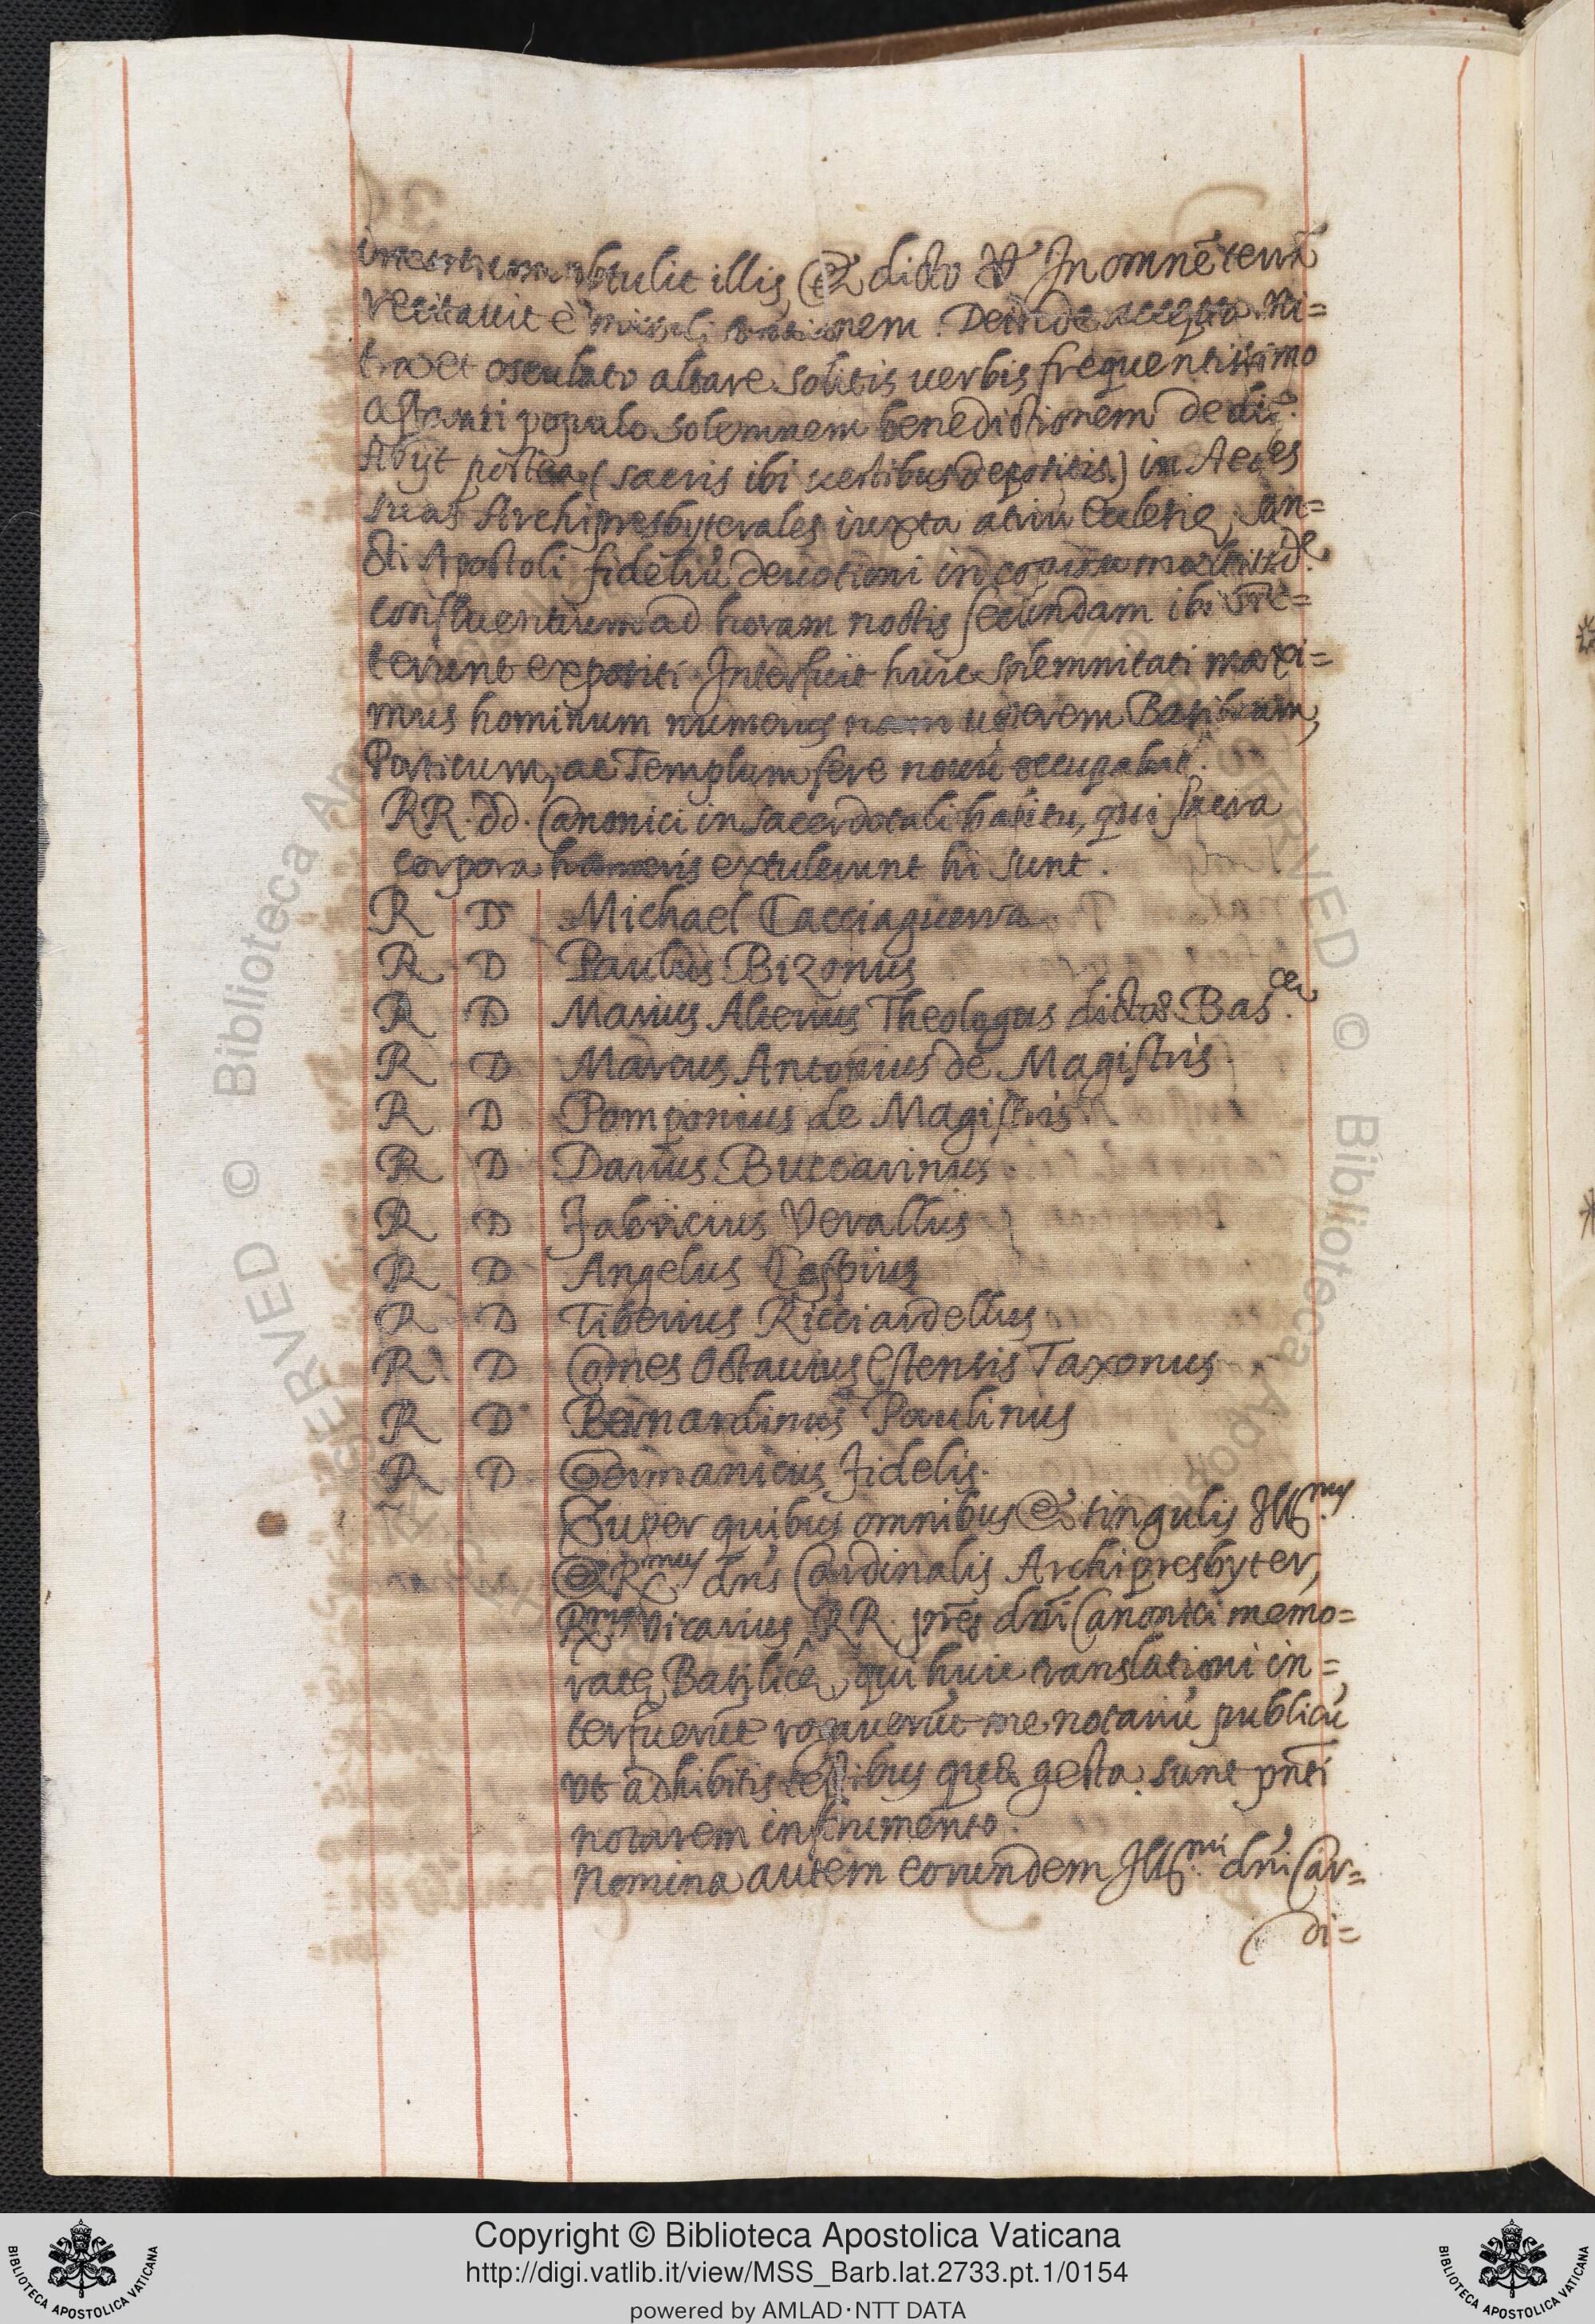 incensum obtulit illis, & dicto ℣ In omnẽ terrã
recitauit è missali orationem. Deinde accepta Mi=
tra et osculato altare solitis uerbis frequentissimo
astanti populo solemnem benedictionem dedit.
Abijt postea (sacris ibi uestibus depositis) in Aedes
suas Archipresbyterales iuxta atriũ Ecclesię, San=
cti Apostoli fideliũ deuotioni in
confluentium ad horam noctis secundam ibi
terunt expositi. Interfuit huic solemnitati maxi=
mus hominum numerus nam ueterem Basilicam,
Porticum, ac Templum fere nouũ occupabat.
RR. dd. Canonici in sacerdotali habitu, qui sacra
corpora humeris extulerunt hi sunt.
R D Michael Cacciaguerra
R D Paulus Bizonus
R D Marius Alterius Theologus dictae Bas.cae
R D Marcus Antonius de Magistris
R D Pomponius de Magistris
R D Darius Buccarinus
R D Fabricius Verallus
R D Angelus Cospius
R D Tiberius Ricciardellus
R D Comes Octauius Estensis Taxonus
R D Bernardinus Paulinus
R D Germanicus Fidelis.
Super quibus omnibus & singulis Ill.mus
& R.mus dns Cardinalis Archipresbyter,
R.mus Vicarius, RR. pr̃es dñi Canonici memo=
ratę Basilicę, qui huic translationi in=
terfuerũt rogauerũt me notariũ publicũ
vt adhibitis testibus quae gesta sunt pñti
notarem instrumento.
Nomina autem eorundem Ill.mi dñi Car=
di=
Copyright © Biblioteca Apostolica Vaticana
http://digi.vatlib.it/view/MSS_Barb.lat.2733.pt.1/0154
powered by AMLAD·NTT DATA
BIBLIOTECA APOSTOLICA VATICANA
BIBLIOTECA APOSTOLICA VATICANA